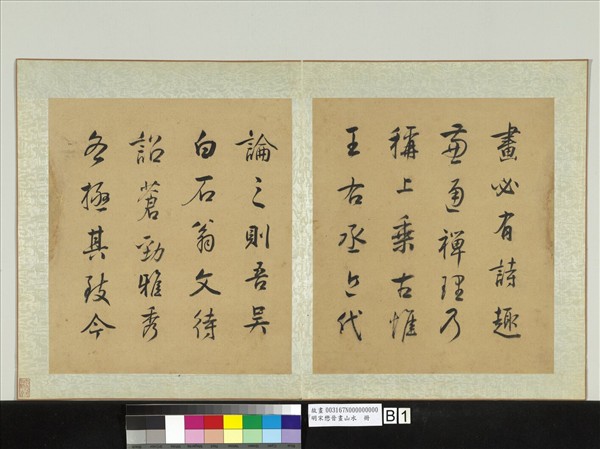 畫必有詩趣
兼通禪理乃
稱上乘古惟
王右丞代
論之則吾吳
白石翁文待
詔蒼勁雅秀
各極其致今
故畫003167N000000000
明宋懋晉畫山水 冊
B1